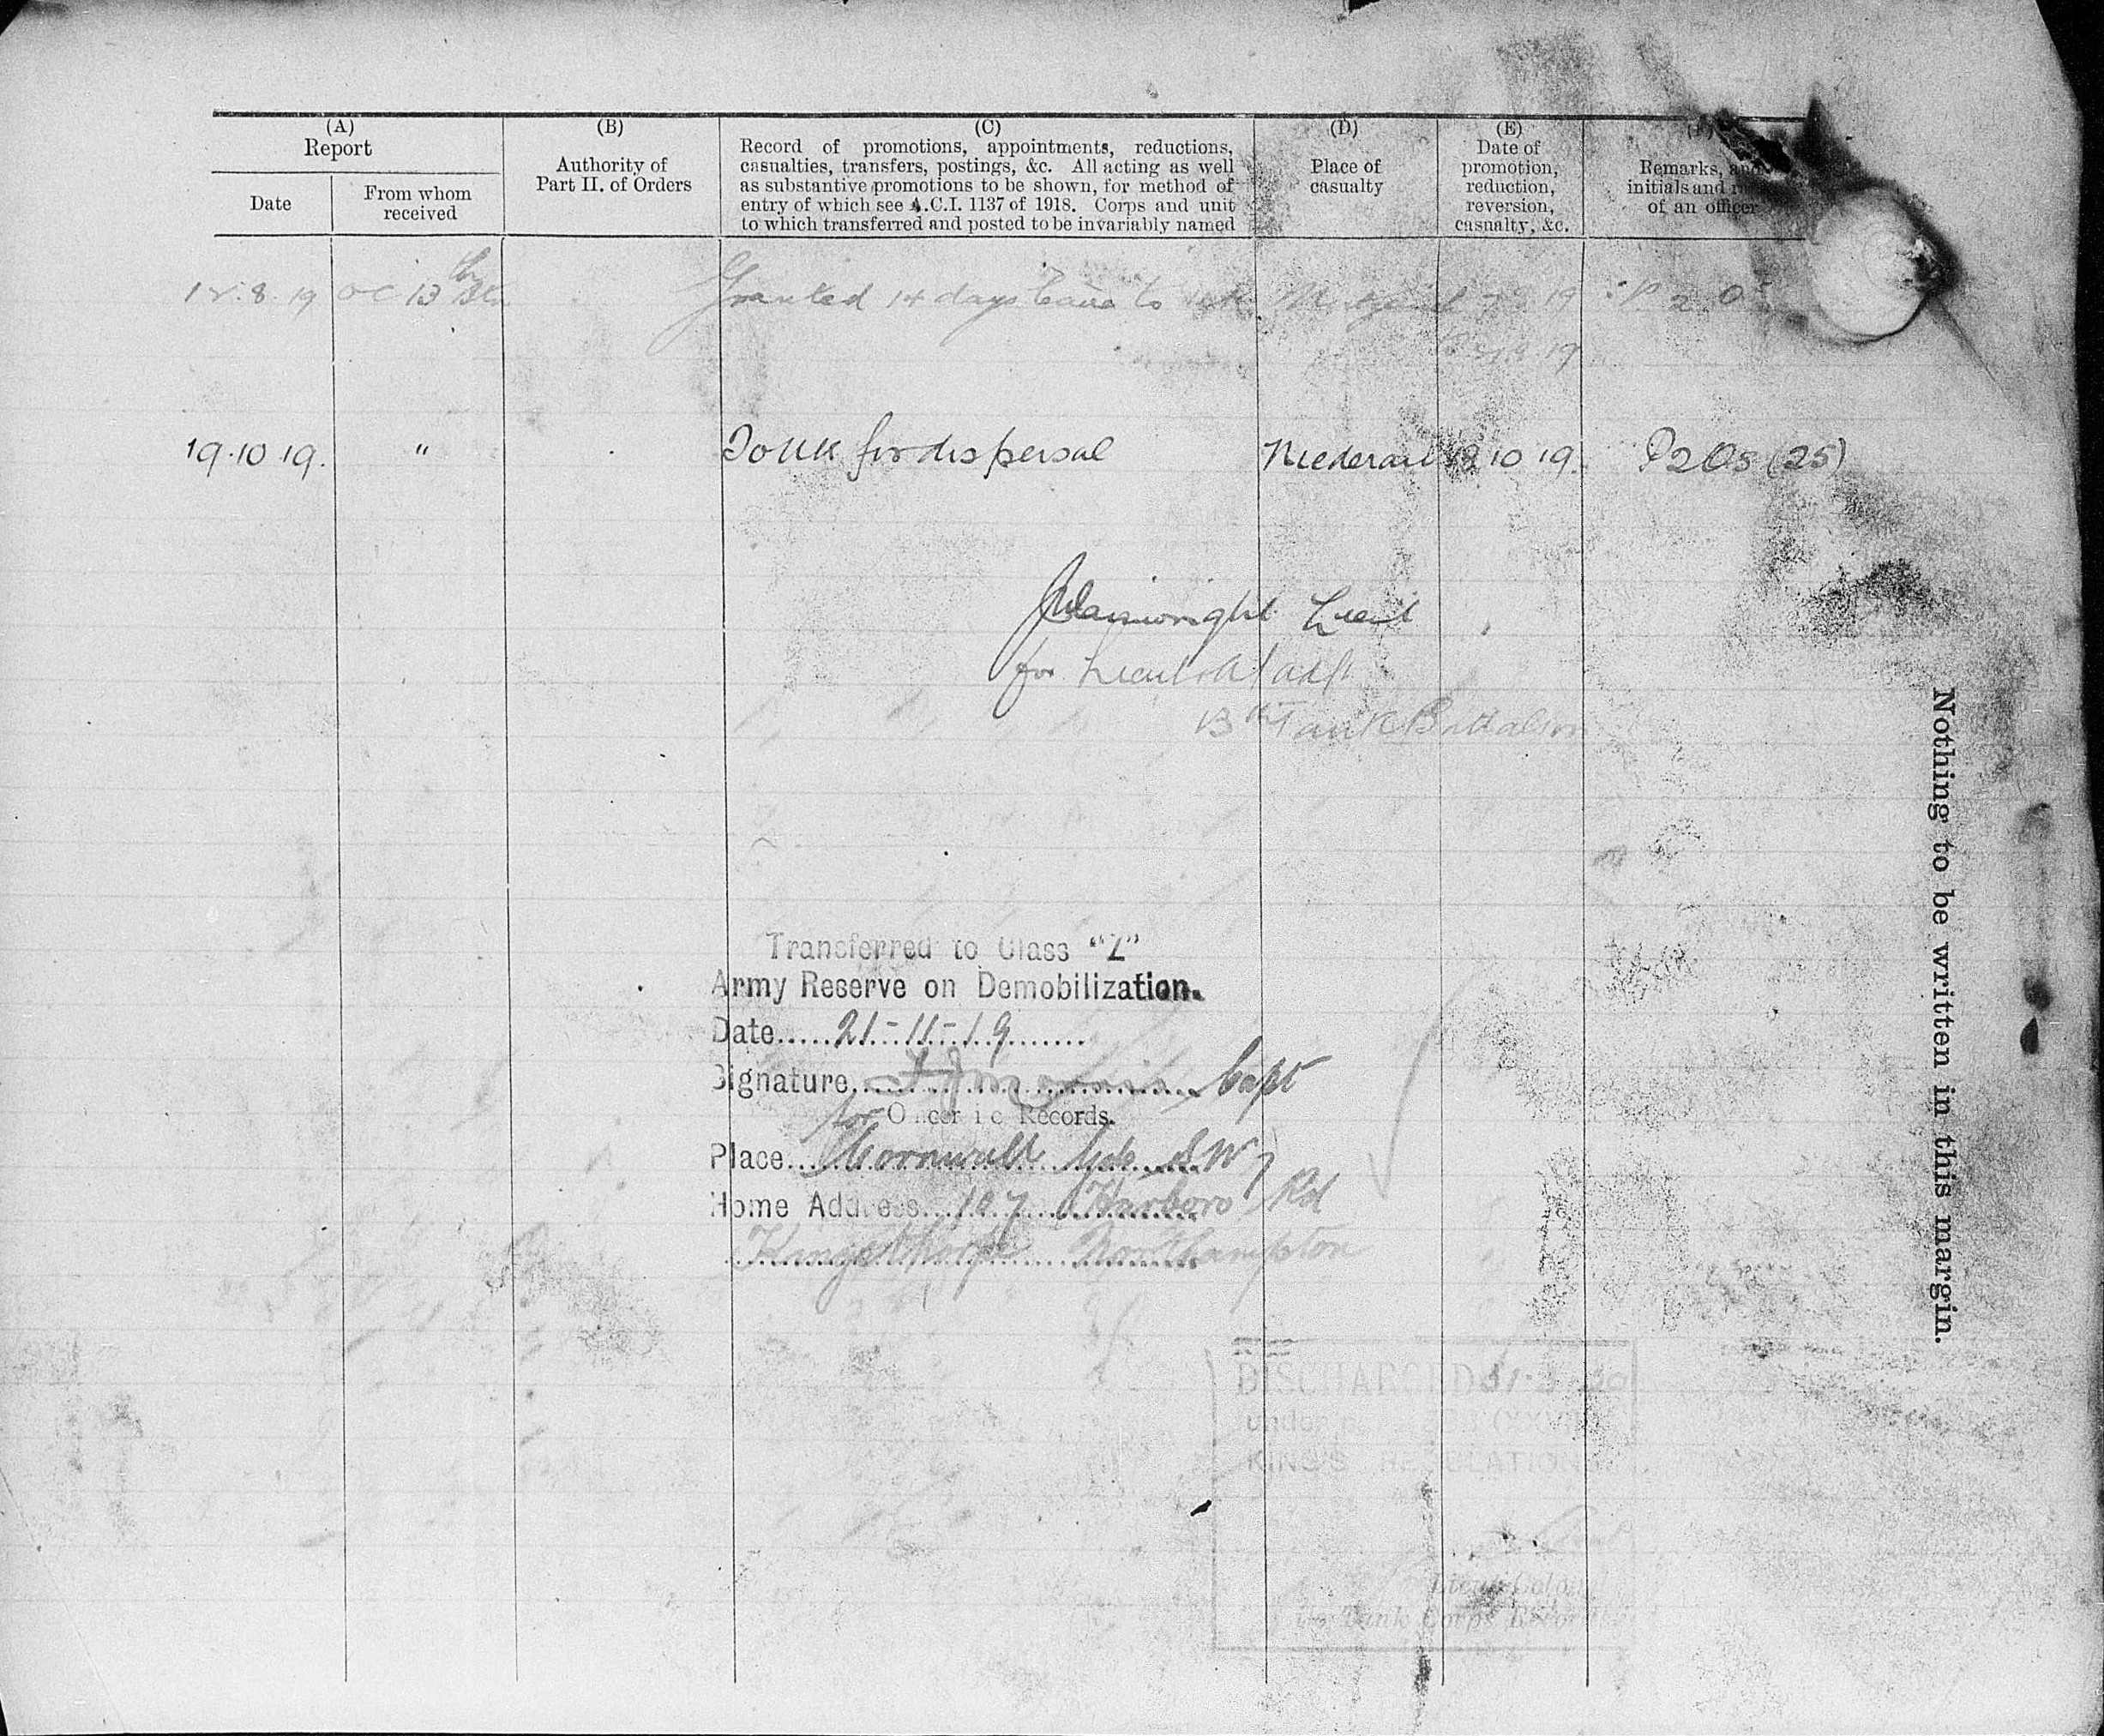 (A)
Report
Date
From whom
received
(B)
Authority of
Part II. of Orders
(C)
Record of promotions, appointments, reductions,
casualties, transfers, postings, &c. All acting as well
as substantive promotions to be shown, for method of
entry of which see A.C.I. 1137 of 1918. Corps and unit
to which transferred and posted to be invariably named
(D)
Place of
casualty
(E)
Date of
promotion,
reduction,
reversion,
casualty, &c.
Remarks, and
initials and
of an officer
12.8.19 OC 13th Bn Granted 14 days leave to UK
19
19.10.19. " To UK for dispersal 19 10 19. P2Os (25)
Wainwright Lieut
for Lieut & A/Adjt
13th Tank Battalion
Transferred to Class "Z"
Army Reserve on Demobilization.
Date 21-11-19
Signature Capt
for Officer i c Records.
Place Cornwall Gds SW7
Home Address 107 Harboro Rd
Kingsthorpe Northampton
DISCHARGED 31·3·20
under
KING'S REGULATIONS
Lieut-Colonel
Tank Corps Records
Nothing to be written in this margin.